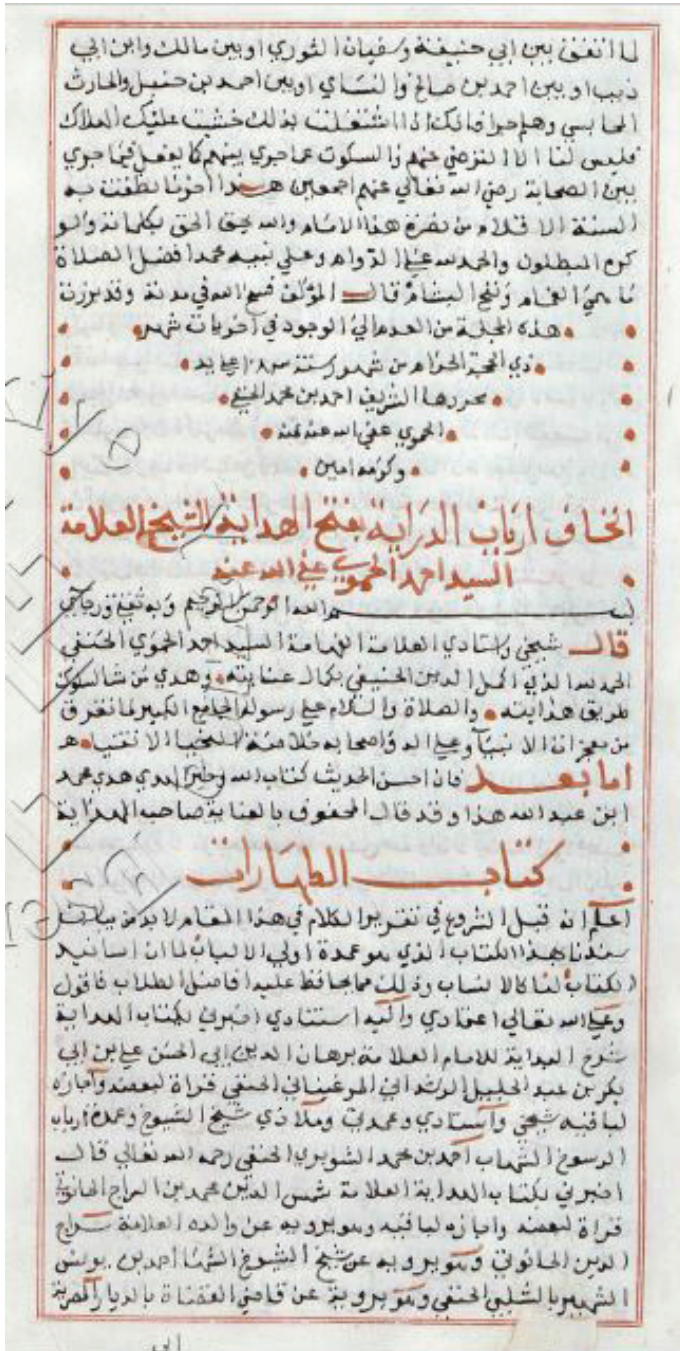 لما اتفق بين ابي حنيفة وسفيان الثوري او بين مالك وابن ابي
ذيب او بين احمد بن صالح والنساي او بين احمد بن حنبل والحارث
المحاسبي وهلم جرا فانك اذا اشتغلت بذلك خشيت عليك الهلاك
فليس لنا الا الترضي عنهم والسكوت عما جري بينهم كما يفعل فيما جري
بين الصحابة رضي الله تعالي عنهم اجمعين هذا اخر ما نطقت به
السنة الاقلام من نصرة هذا الامام والله يحق الحق بكلماته ولو
كره المبطلون والحمد لله علي الدوام وعلي نبيه محمد افضل الصلاة
ما همي الغمام ونفح البشام قال المؤلف فسح الله في مدته وقد برزت
هذه المجلة من العدم الي الوجود في اخريات شهر
ذي الحجة الحرام من شهور سنة علي يد
محررها الشريف احمد بن محمد الحنفي
الحموي عفي الله عنه بمنه
وكرمه امين
اتحاف ارباب الدراية بفتح الهداية للشيخ العلامة
السيد احمد الحموي عفي الله عنه
بسم الله الرحمن الرحيم وبه ثقتي ورجاي
قال شيخي واستاذي العلامة الفهامة السيد احمد الحموي الحنفي
الحمد لله الذي اكمل الدين الحنيفي بكمال عنايته وهدي من شا لسلوك
طريق هدايته والصلاة والسلام علي رسوله الجامع الكبير لما تفرق
من معجزات الانبيا وعلي اله واصحابه خلاصة النجبا الاتقيا
اما بعد فان احسن الحديث كتاب الله وخير الهدي هدي محمد
ابن عبد الله هذا وقد قال المحفوف بالعناية صاحب الهداية
كتاب الطهارات
اعلم انه قبل الشروع في تقرير الكلام في هذا المقام لا بد من بيان
سندنا بهذا الكتاب الذي هو عمدة اولي الالباب لما ان اسانيد
الكتاب لنا كالانساب وذلك مما يحافظ عليه افاضل الطلاب فاقول
وعلي الله تعالي اعتمادي واليه استنادي اخبرني بكتاب الهداية
شرح البداية للامام العلامة برهان الدين ابي الحسن علي بن ابي
بكر بن عبد الجليل الرشداني المرغيناني الحنفي قراة لبعضه واجازه
لباقيه شيخي واستاذي وعمدتي وملاذي شيخ الشيوخ وعمدة ارباب
الرسوخ الشهاب احمد بن محمد الشوبري الحنفي رحمه الله تعالي قال
اخبرني بكتاب الهداية العلامة شمس الدين محمد بن السراج الحانوتي
قراة لبعضه واجازه لباقيه وهو يرويه عن والده العلامة سراج
الدين الحانوتي وهو يرويه عن شيخ الشيوخ الشهاب احمد بن يونس
الشهير بالشلبي الحنفي وهو يرويه عن قاضي القضاة بالديار المصرية